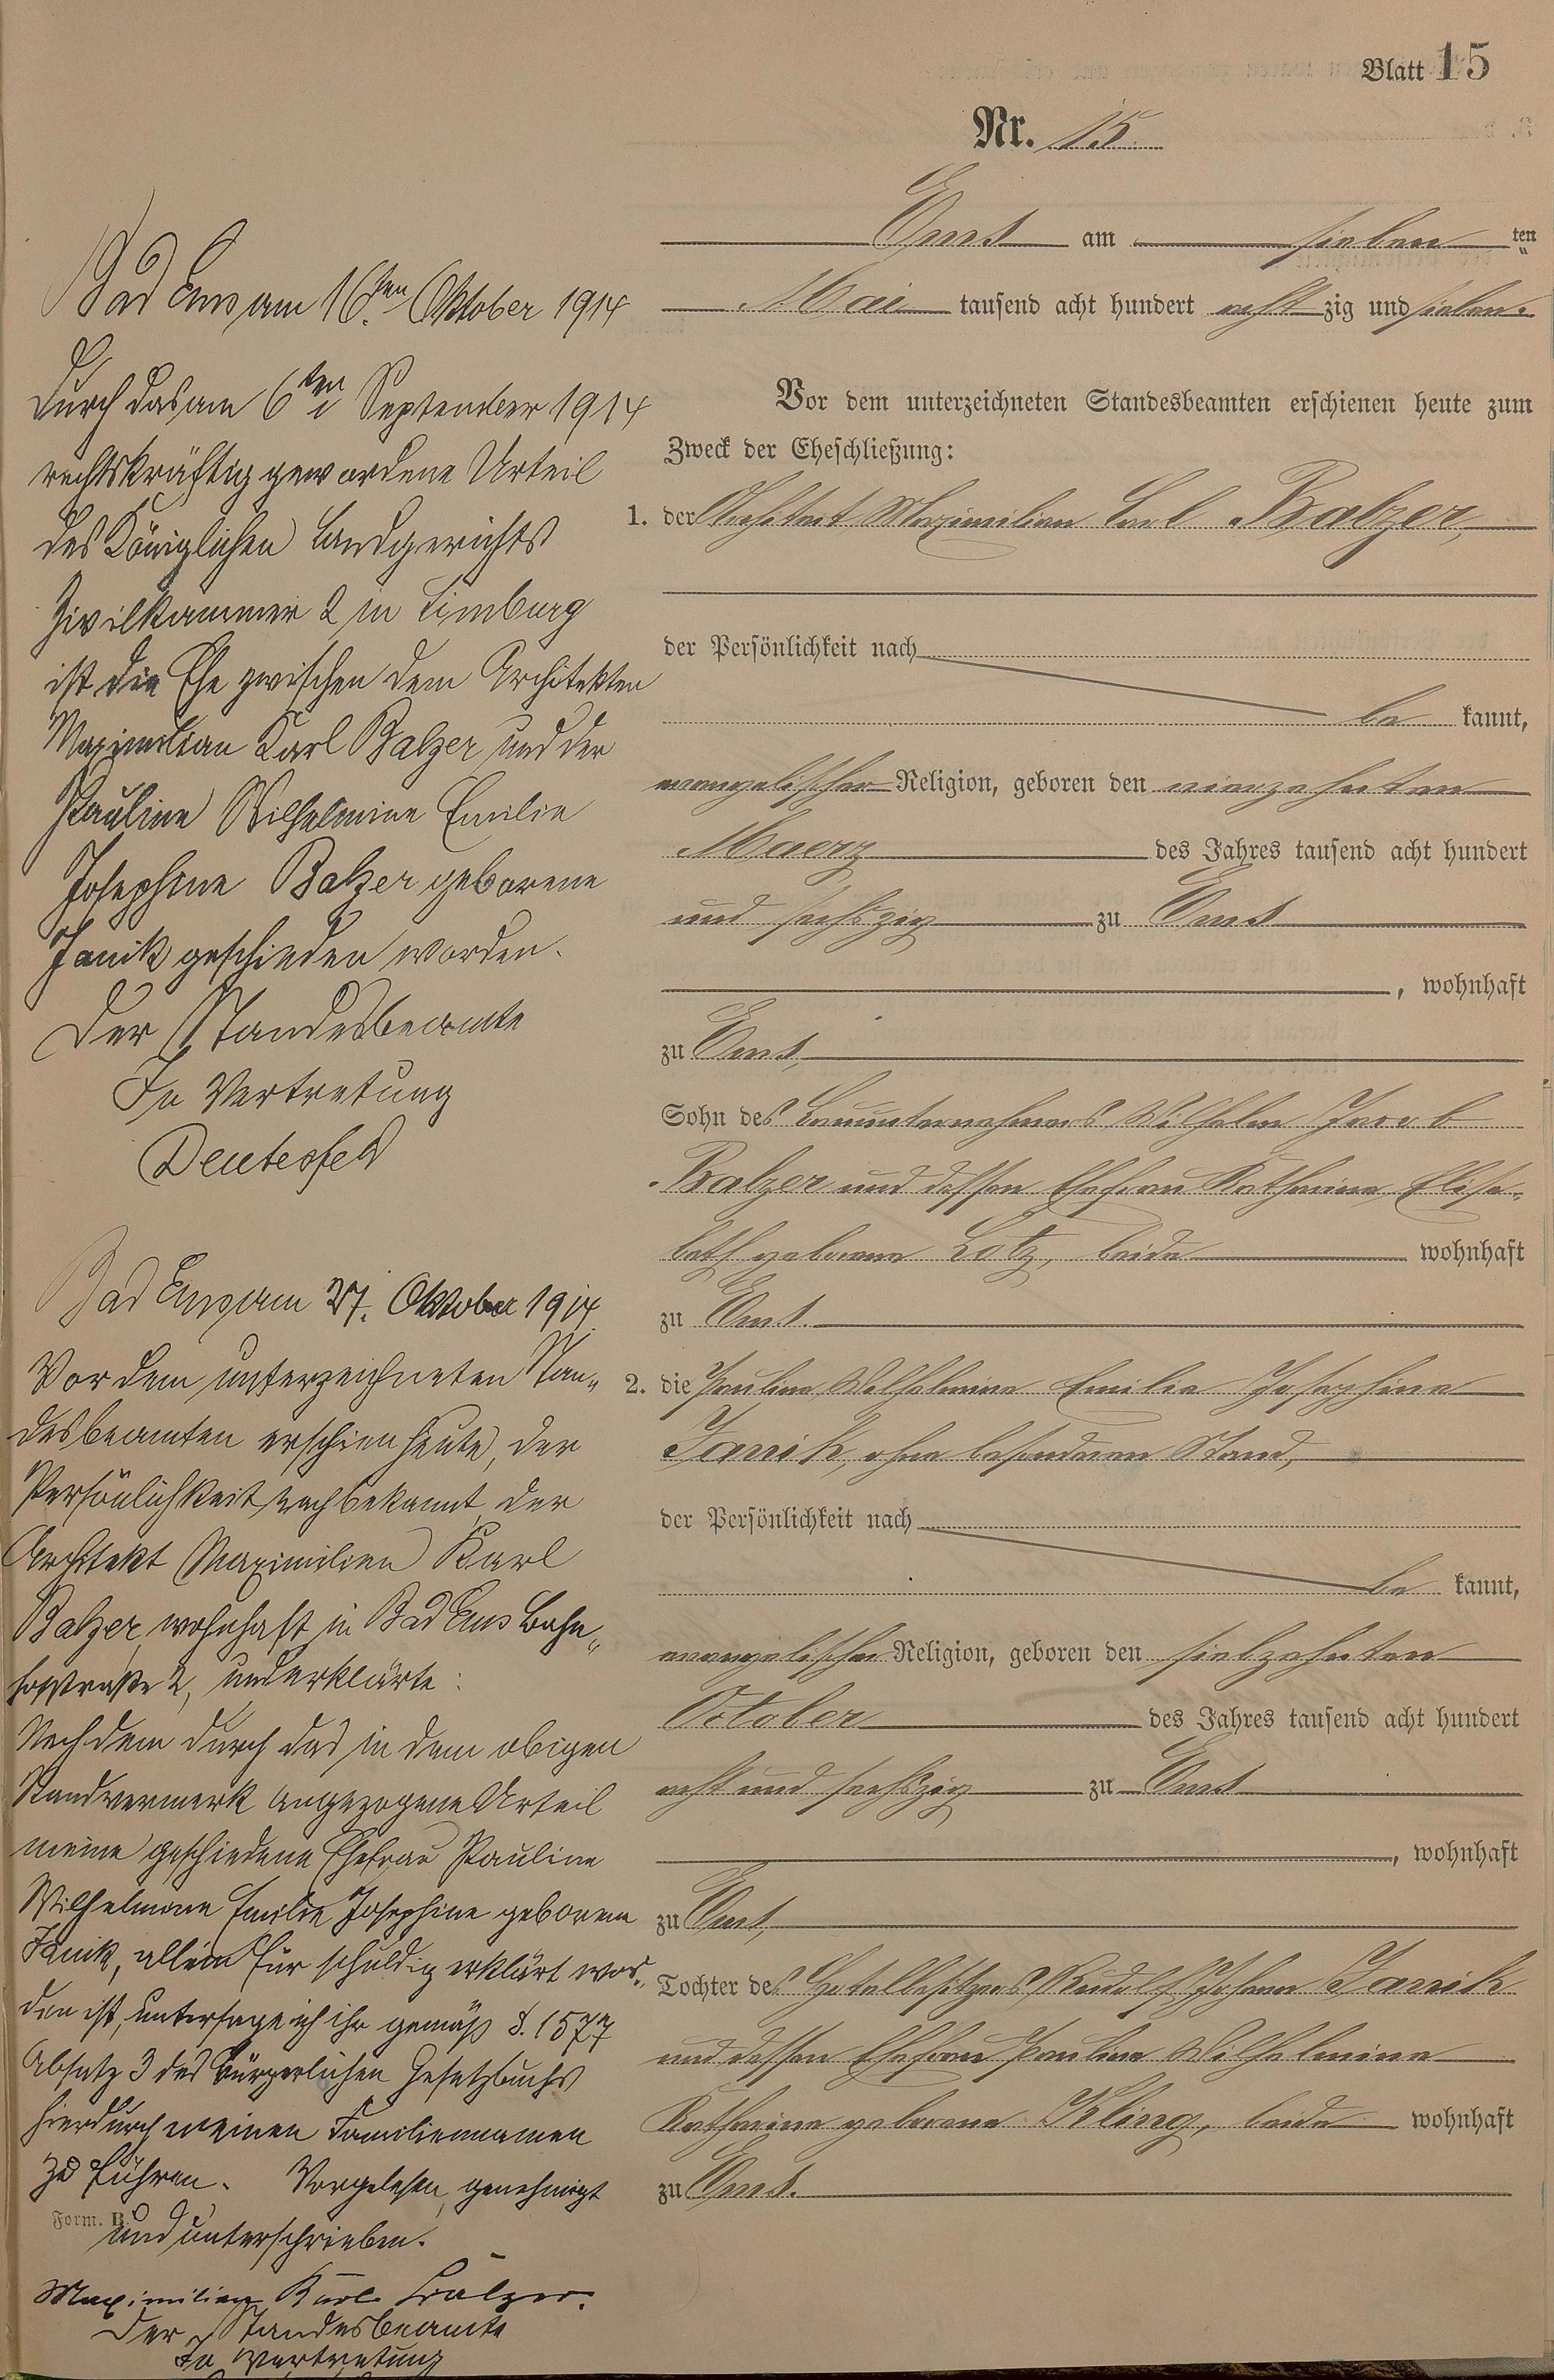 Blatt 15
Nr. 15
Ems am sieben ten
Mai tausend acht hundert acht zig und sieben.
Vor dem unterzeichneten Standesbeamten erschienen heute zum
Zweck der Eheschließung:
1. der Architect Maximilian Carl Balzer,
der Persönlichkeit nach
be kannt,
evangelischer Religion, geboren den vierzehnten
Maerz des Jahres tausend acht hundert
und sechszig zu Ems
, wohnhaft
zu Ems,
Sohn des Bauunternehmers Wilhelm Jacob
Balzer und dessen Ehefrau Katharina Elisa-
beth geborene Lotz, beide wohnhaft
zu Ems.
2. die Pauline Wilhelmine Emilie Josephine
Janik, ohne besonderen Stand,
der Persönlichkeit nach
be kannt,
evangelischer Religion, geboren den siebzehnten
October des Jahres tausend acht hundert
acht und sechszig zu Ems
, wohnhaft
zu Ems,
Tochter des Hotelbesitzers Rudolf Johann Janik
und dessen Ehefrau Pauline Wilhelmine
Katharina geborene Kling, beide wohnhaft
zu Ems.
Bad Ems am 16ten Oktober 1914
Durch das am 6ten September 1914
rechtskräftig gewordene Urteil
des Königlichen Landgerichts
Zivilkammer 2 in Limburg
ist die Ehe zwischen dem Architekten
Maximilian Karl Balzer und der
Pauline Wilhelmine Emilie
Josephine Balzer geborene
Janik geschieden worden.
Der Standesbeamte
In Vertretung
Deutesfeld
Bad Ems am 27. Oktober 1914.
Vor dem unterzeichneten Stan-
desbeamten erschien heute, der
Persönlichkeit nach bekannt, der
Architekt Maximilian Karl
Balzer, wohnhaft in Bad Ems Bahn-
hofstraße 2, und erklärte:
Nachdem durch das in dem obigen
Randvermerk angezogene Urteil
meine geschiedene Ehefrau Pauline
Wilhelmine Emilie Josephine geborene
Janik, allein für schuldig erklärt wor-
den ist, untersage ich ihr gemäß §. 1577
Absatz 3 des Bürgerlichen Gesetzbuchs
hierdurch meinen Familiennamen
zu führen. Vorgelesen, genehmigt
Form. B.
und unterschrieben.
Maximilian Karl Balzer.
Der Standesbeamte
In Vertretung